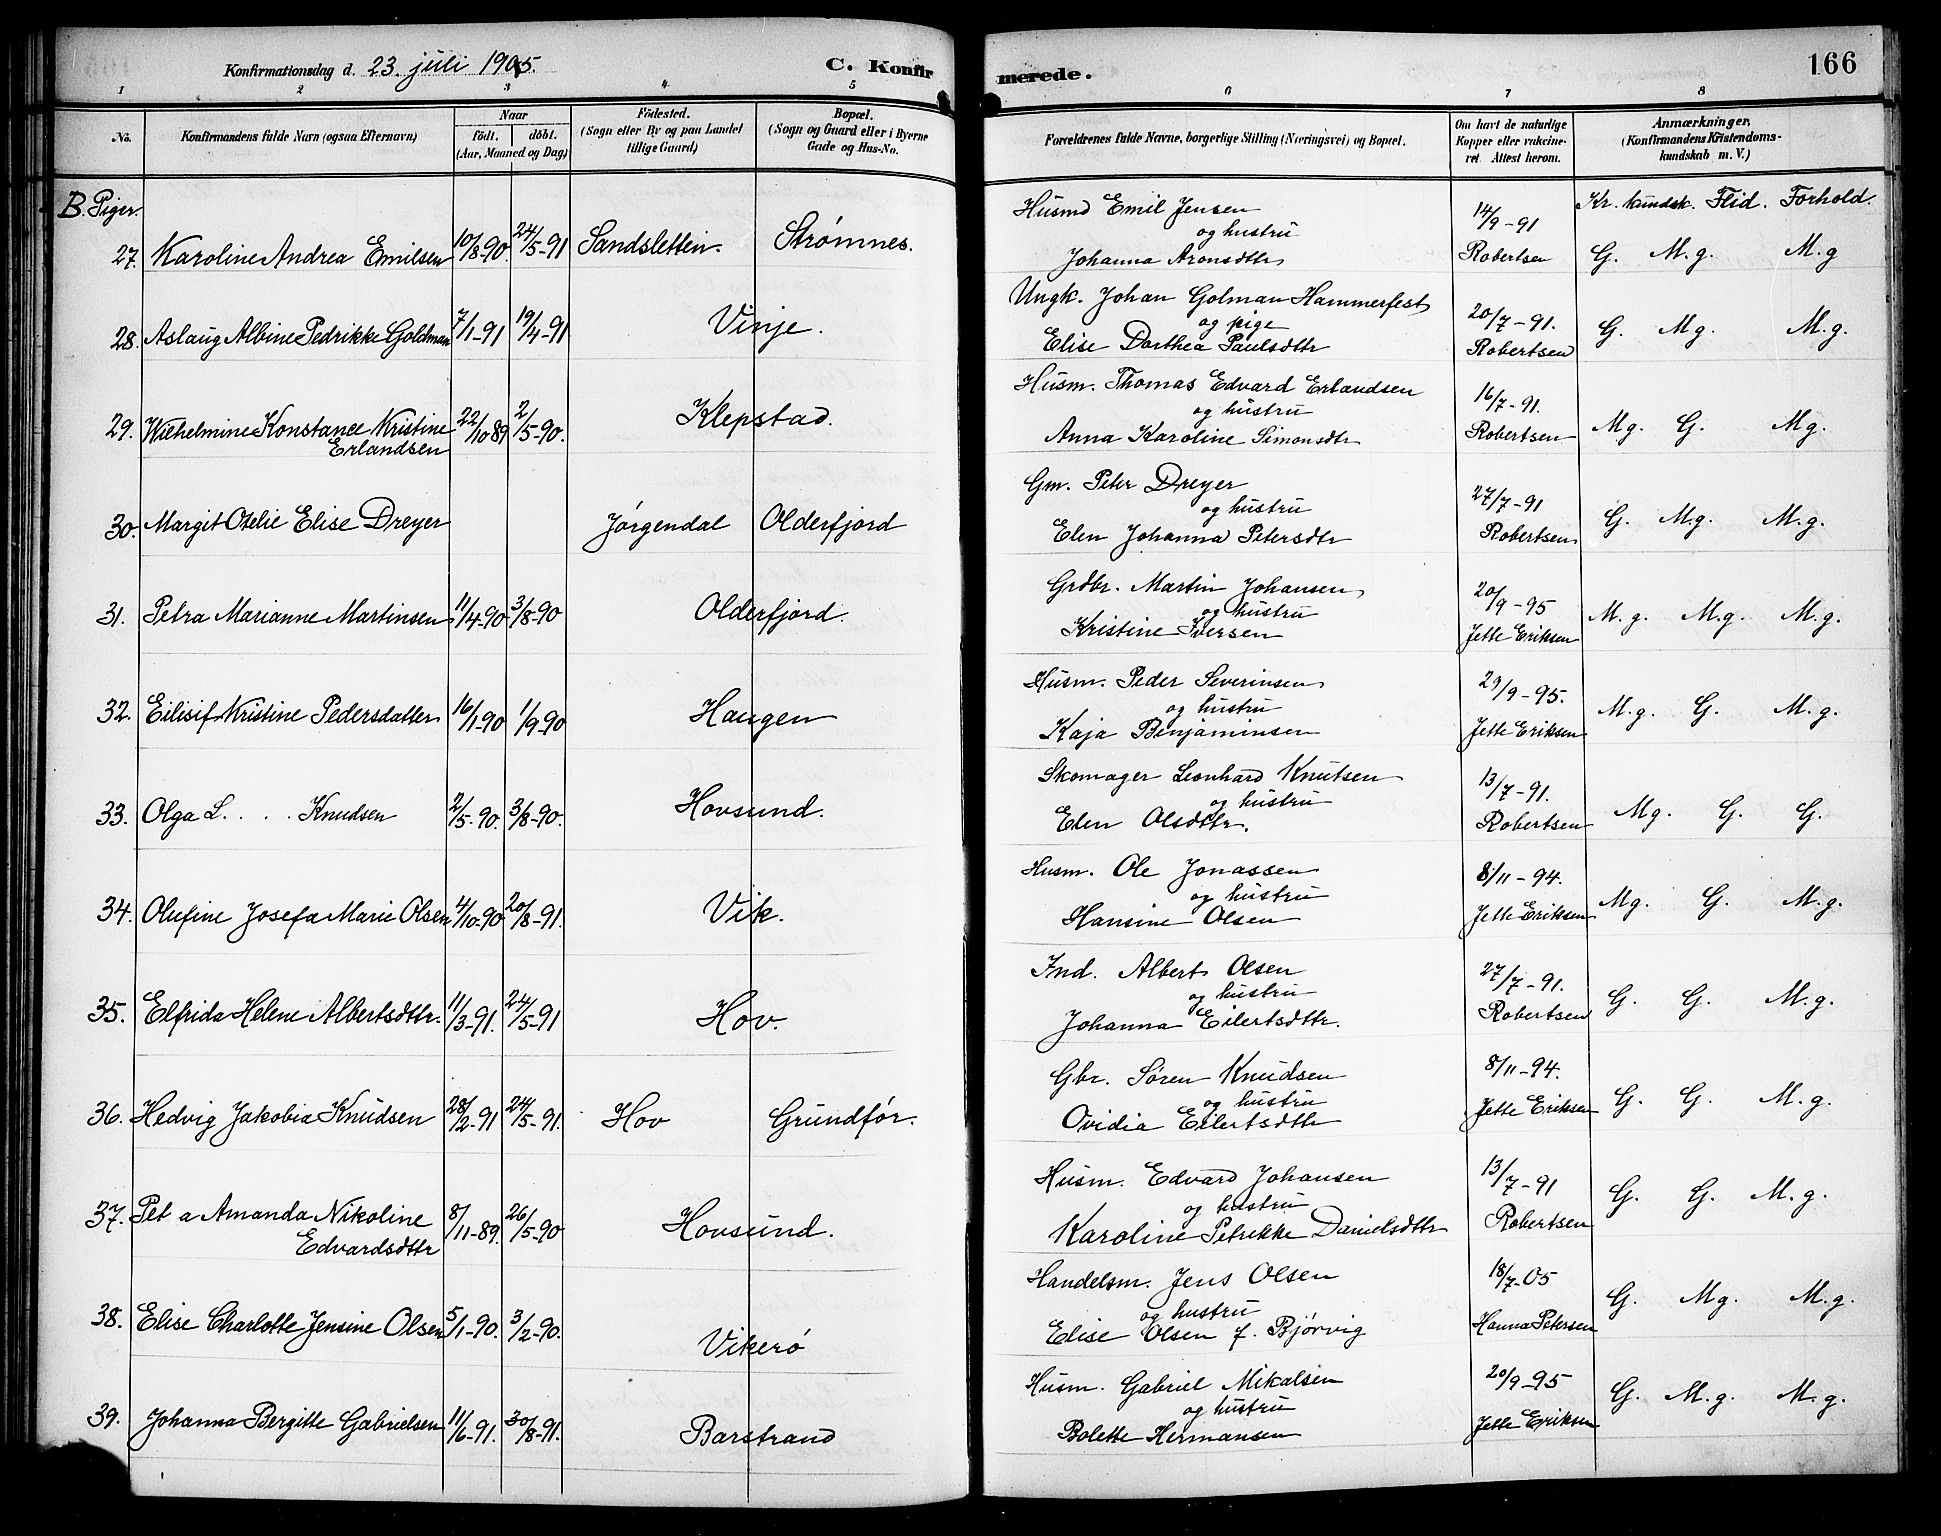 Konfirmationsdag d. 23. juli 1905.
C. Konfirmerede.
166
1 2 3 4 5 6 7 8
No.
Konfirmandens fulde Navn (ogsaa Efternavn)
Naar
født. døbt.
(Aar, Maaned og Dag)
Fødested.
(Sogn eller By og paa Landet
tillige Gaard)
Bopæl.
(Sogn og Gaard eller i Byerne
Gade og Hus-No.
Forældrenes fulde Navne, borgerlige Stilling (Næringsvei) og Bopæl.
Om havt de naturlige
Kopper eller vakcine-
ret. Attest herom.
Anmærkninger.
(Konfirmandens Kristendoms-
kundskab m. V.)
B. Piger.
Kr. kundsk. Flid. Forhold.
27. Karoline Andrea Emilsen 10/8-90. 24/5-91 Sandsletten. Strømnes.
Husmd Emil Jensen
og hustru
Johanna Aronsdttr
14/9-91
Robertsen
G. M.g. M.g
28. Aslaug Albine Pedrikke Goldman 7/1-91 19/4-91 Vinje.
Ungk. Johan Golman Hammerfest
og pige
Elise Dorthea Paulsdttr
20/7-91.
Robertsen
G. Mg. M.g.
29. Wilhelmine Konstance Kristine
Erlandsen
22/10 89 2/5-90. Klepstad.
Husm. Thomas Edvard Erlandsen
og hustru
Anna Karoline Simonsdtr
16/7-91.
Robertsen
Mg. G. Mg.
30. Margit Otelie Elise Dreyer Jørgendal Olderfjord
Gm. Peter Dreyer
og hustru
Elen Johanna Petersdtr
27/7-91
Robertsen
G. M.g. M.g.
31. Petra Marianne Martinsen 11/4-90 3/8-90 Olderfjord.
Grdbr. Martin Johansen
og hustru
Kristine Iversen
20/9-95
Jette Eriksen
M.g. M.g. M.g.
32. Eilisif Kristine Pedersdatter 16/1-90 1/9-90 Haugen
Husm. Peder Severinsen
og hustru
Kaja Benjaminsen
29/9-95.
Jette Eriksen
M.g. G. M.g.
33. Olga L. . . . Knudsen 2/5-90. 3/8-90. Hovsund.
Skomager Leonhard Knutsen
og hustru
Elen Olsdttr.
13/7-91.
Robertsen
Mg. G. G.
34. Olufine Josefa Marie Olsen 4/10-90 20/8-91. Vik.
Husm. Ole Jonassen
og hustru
Hansine Olsen
8/11-94.
Jette Eriksen
Mg. G. M.g.
35. Elfrida Helene Albertsdttr. 11/3-91. 24/5-91 Hov.
Ind. Albert Olsen
og hustru
Johanna Eilertsdttr.
27/7-91.
Robertsen
G. G. M.g.
36. Hedvig Jakobia Knudsen 28/2-91 24/5-91. Hov Grundfør.
Gbr. Søren Knudsen
og hustru
Ovidia Eilertsdttr
8/11-94.
Jette Eriksen
G. G. M.g.
37. Pet a Amanda Nikoline
Edvardsdttr
8/11-89. 26/5-90 Hovsund.
Husm. Edvard Johansen
og hustru
Karoline Petrikke Danielsdttr
13/7-91
Robertsen
G. G. M.g.
38. Elise Charlotte Jensine Olsen 5/1-90. 3/2-90. Vikerø
Handelsm. Jens Olsen
og hustru
Elise Olsen f. Bjørvig
18/7-05
Hanna Petersen
G. Mg. M.g.
39. Johanna Bergitte Gabrielsen 11/6-91. 30/8-91. Barstrand
Husm. Gabriel Mikalsen
og hustru
Bolette Hermansen
20/9-95
Jette Eriksen
G. M.g. M.g.